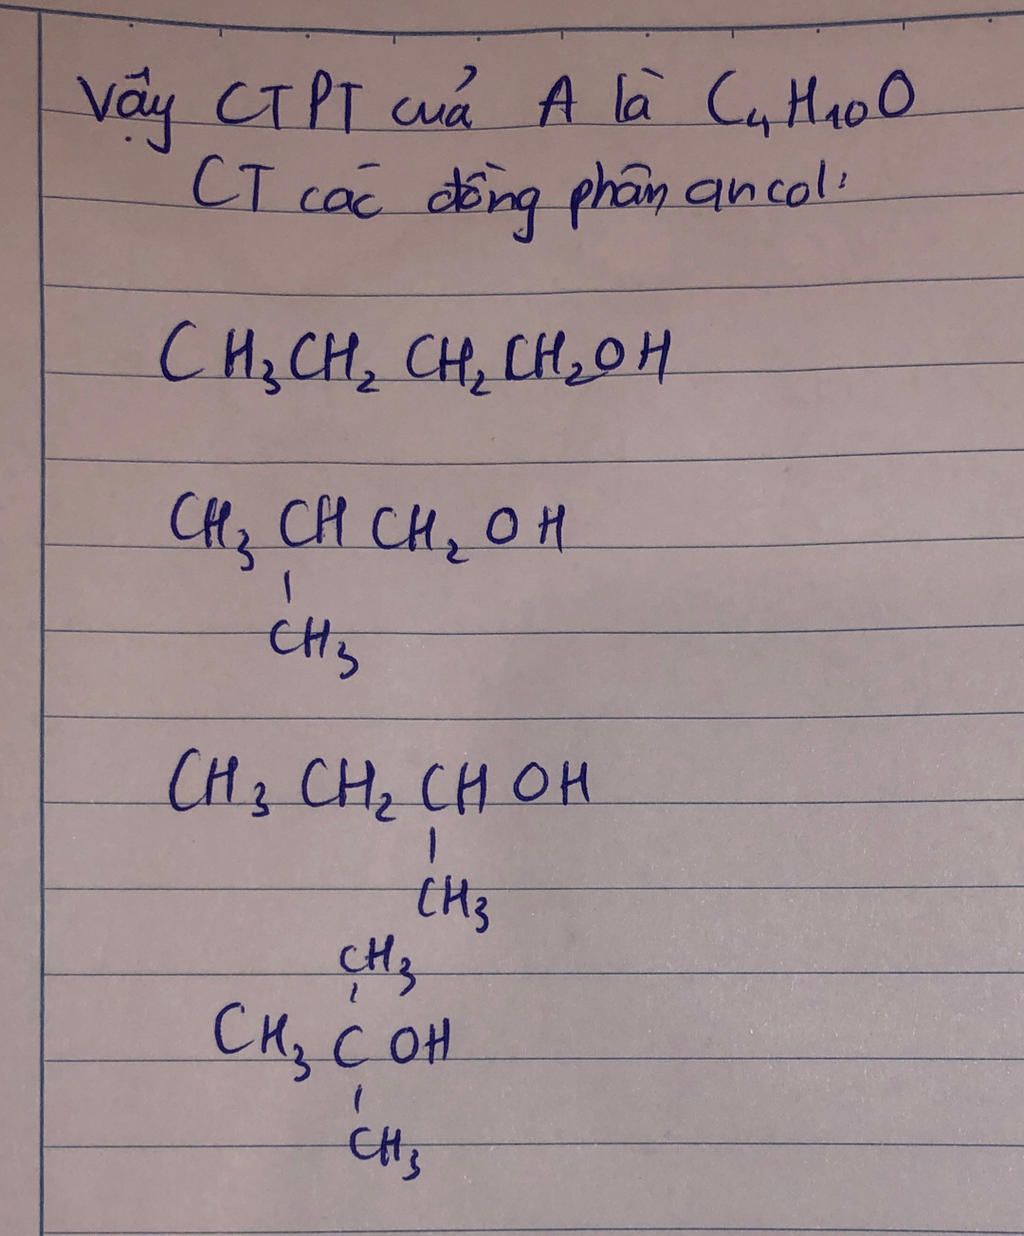 Vậy CTPT cuả A là C₄H₁₀O
CT các đồng phân ancol:
CH₃CH₂CH₂CH₂OH
CH₃CHCH₂OH
|
CH₃
CH₃CH₂CHOH
|
CH₃
CH₃
|
CH₃COH
|
CH₃